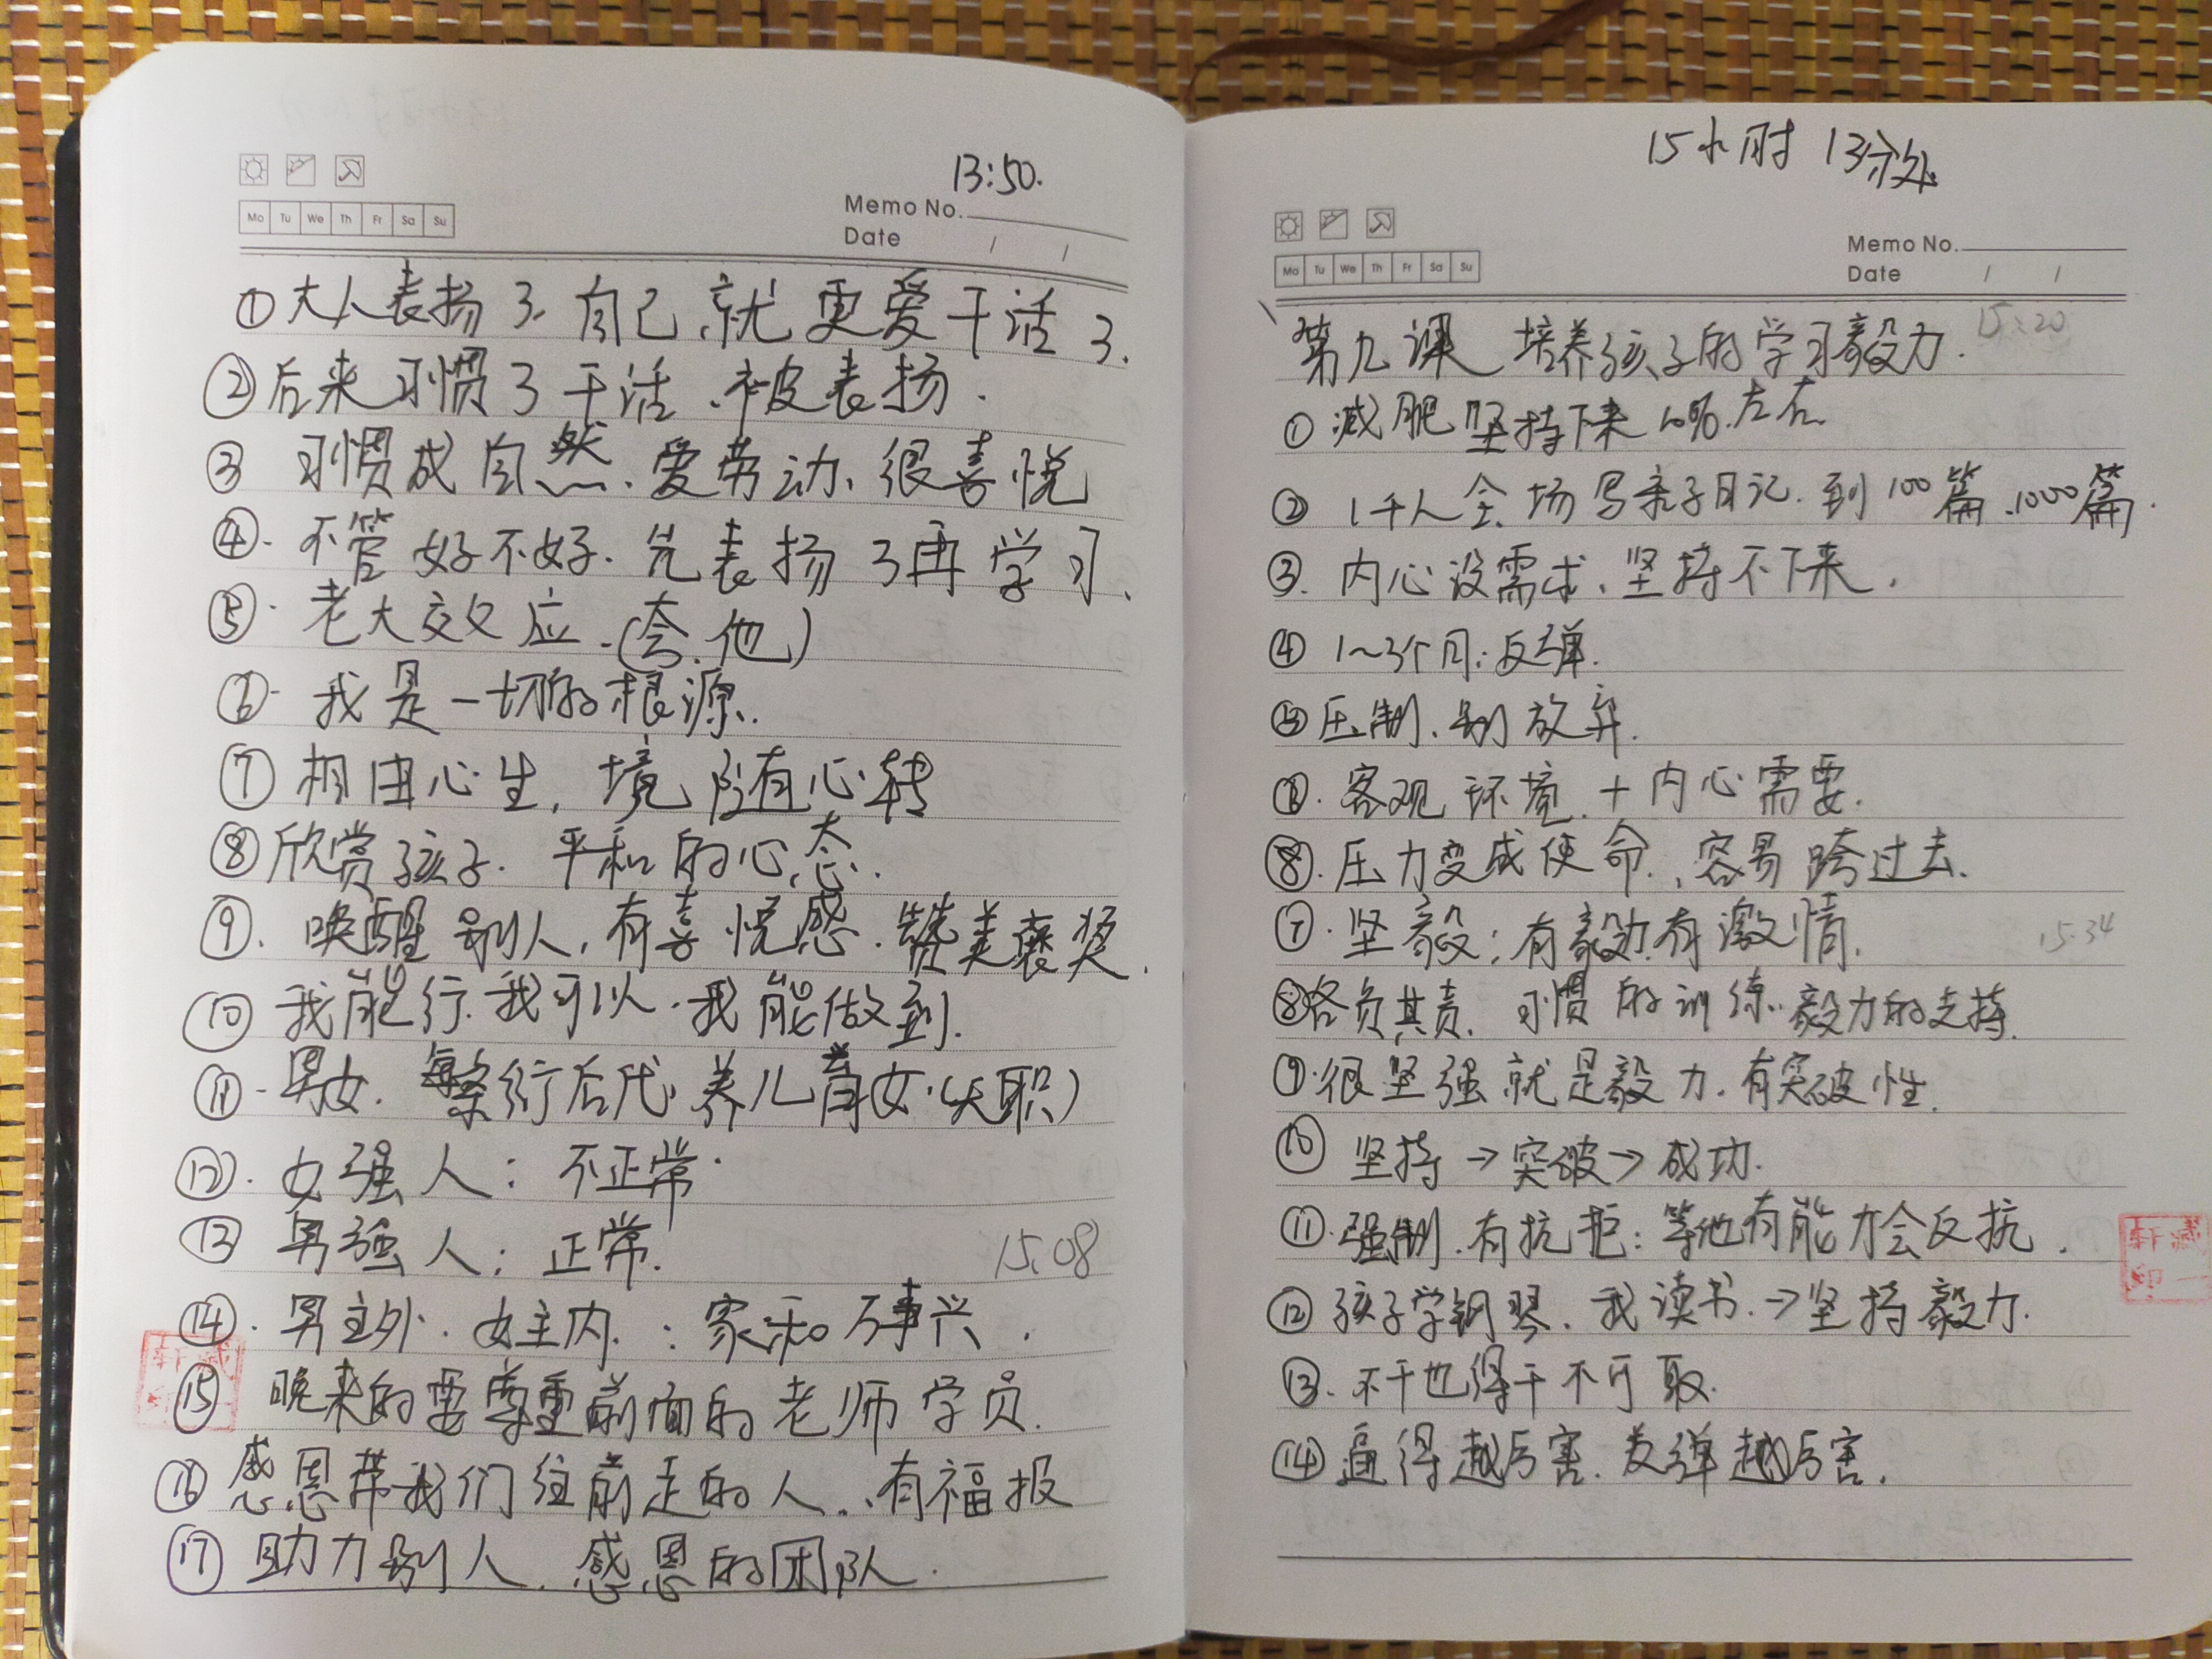 13:50.
Memo No.
Mo Tu We Th Fr Sa Su
Date / /
①大人表扬了.自己.就更爱干活了.
②后来习惯了干活.被表扬.
③ 习惯成自然.爱劳动.很喜悦
④.不管好不好.先表扬了再学习.
⑤.老大效应.(夸.他)
⑥.我是一切的根源.
⑦ 相由心生,境随心转
⑧欣赏孩子.平和的心态.
⑨.唤醒别人,有喜悦感.赞美褒奖.
⑩ 我能行.我可以.我能做到.
⑪.男女.繁衍后代.养儿育女.(天职)
⑫.女强人:不正常.
⑬ 男强人;正常.
15.08
⑭.男主外.女主内.:家和万事兴.
⑮ 晚来的要尊重前面的老师学员.
⑯ 感恩带我们往前走的人..有福报
⑰ 助力别人.感恩的团队.
15小时 13分处
Memo No.
Mo Tu We Th Fr Sa Su
Date / /
15:20
第九课 培养孩子的学习毅力.
① 减肥坚持下来10%.左右.
② 1千人全.场写亲子日记.到100篇.1000篇.
③.内心没需求.坚持不下来.
④ 1~3个月:反弹.
⑤压制.别放弃.
⑥.客观环境.+内心需要.
⑧.压力变成使命.容易跨过去.
⑦.坚毅;有毅力.有激情.
15.34
⑧各负其责.习惯的训练.毅力的支持.
⑨.很坚强就是毅力.有突破性.
⑩ 坚持→突破→成功.
⑪.强制.有抗拒:等他有能力会反抗.
⑫孩子学钢琴.我读书.→坚持毅力.
⑬.不干也得干不可取.
⑭逼得越厉害.反弹越厉害.